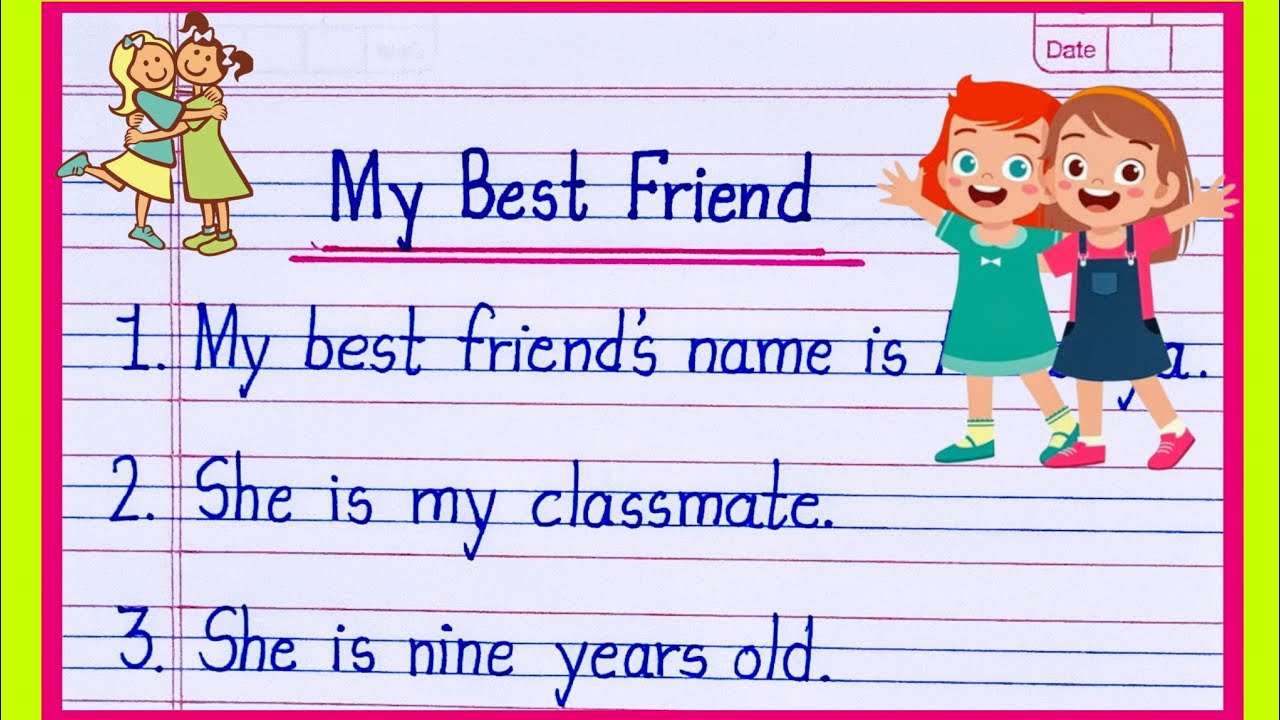 Date
My Best Friend
1. My best friend's name is
2. She is my classmate.
3. She is nine years old.